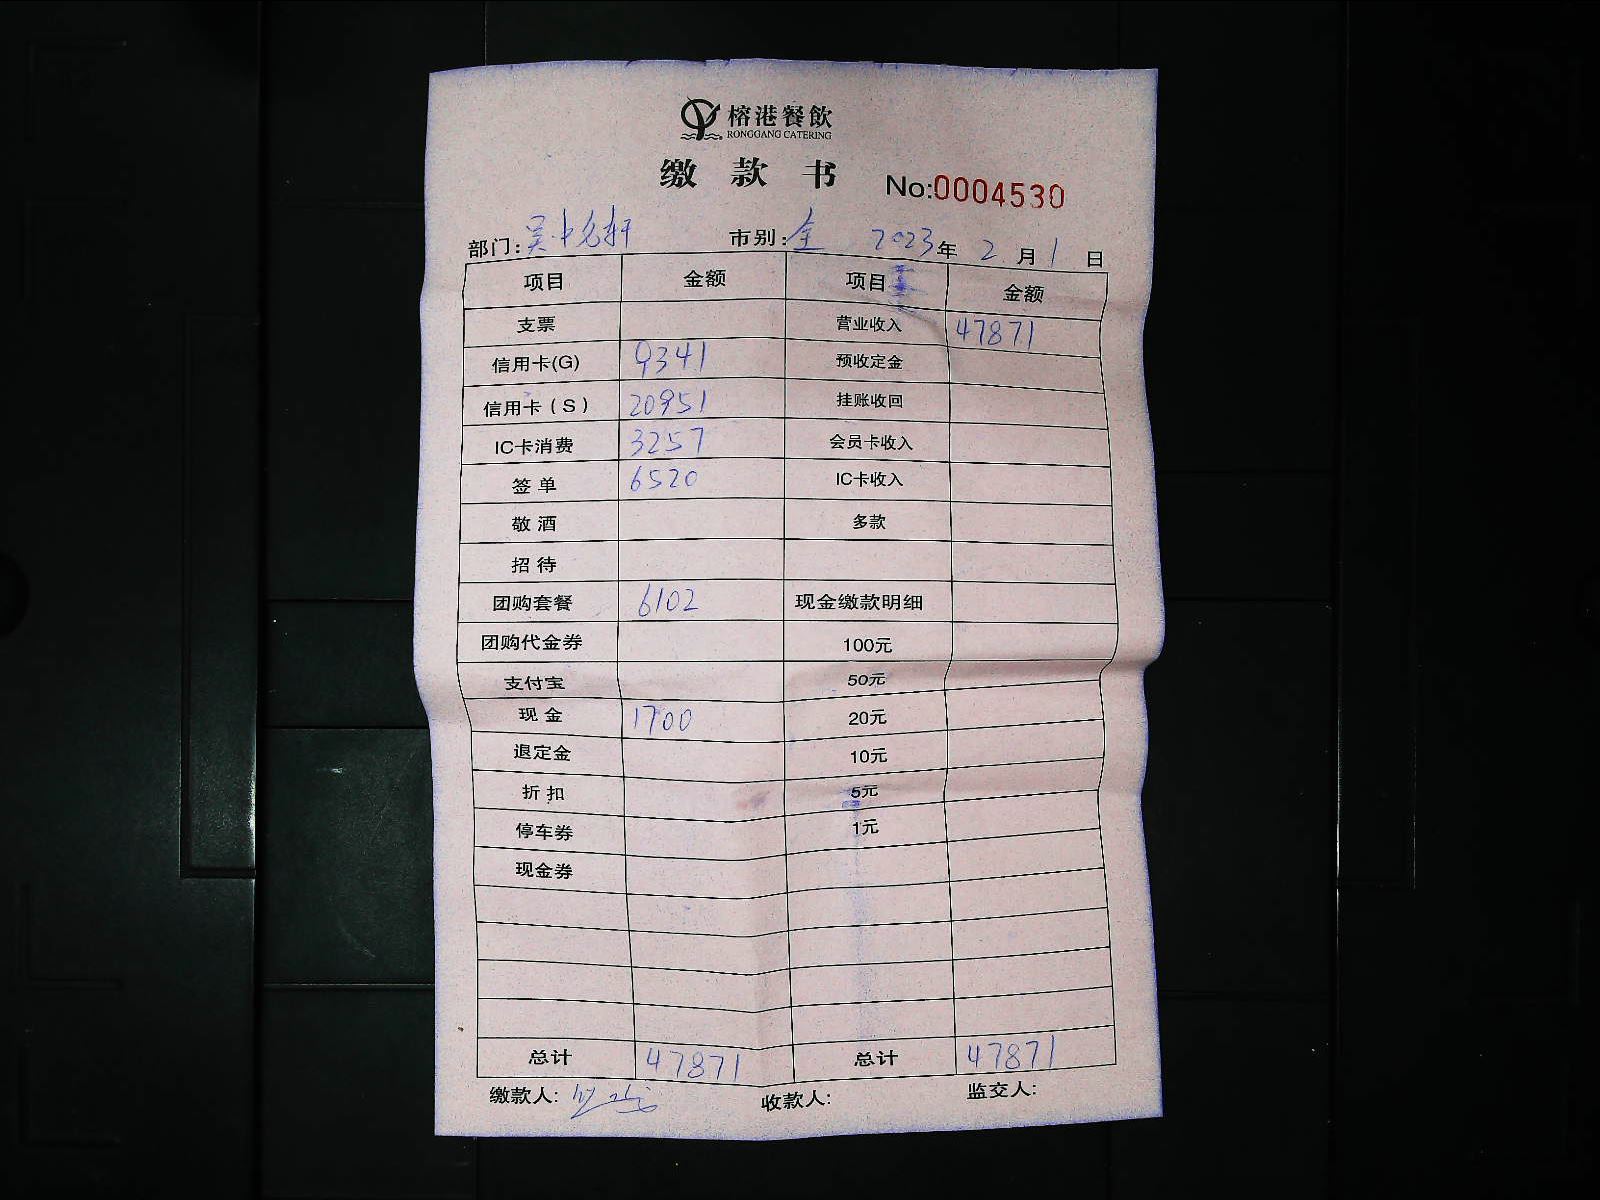 榕港餐飲
RONGGANG CATERING
缴 款 书 No:0004530
部门: 吴中名轩 市别: 全 2023年 2月 1日
项目 金额 项目 金额
支票 营业收入 47871
信用卡(G) 9341 预收定金
信用卡(S) 20951 挂账收回
IC卡消费 3257 会员卡收入
签 单 6520 IC卡收入
敬 酒 多款
招 待
团购套餐 6102 现金缴款明细
团购代金券 100元
支付宝 50元
现 金 1700 20元
退定金 10元
折 扣 5元
停车券 1元
现金券
总计 47871 总计 47871
缴款人: 收款人: 监交人: